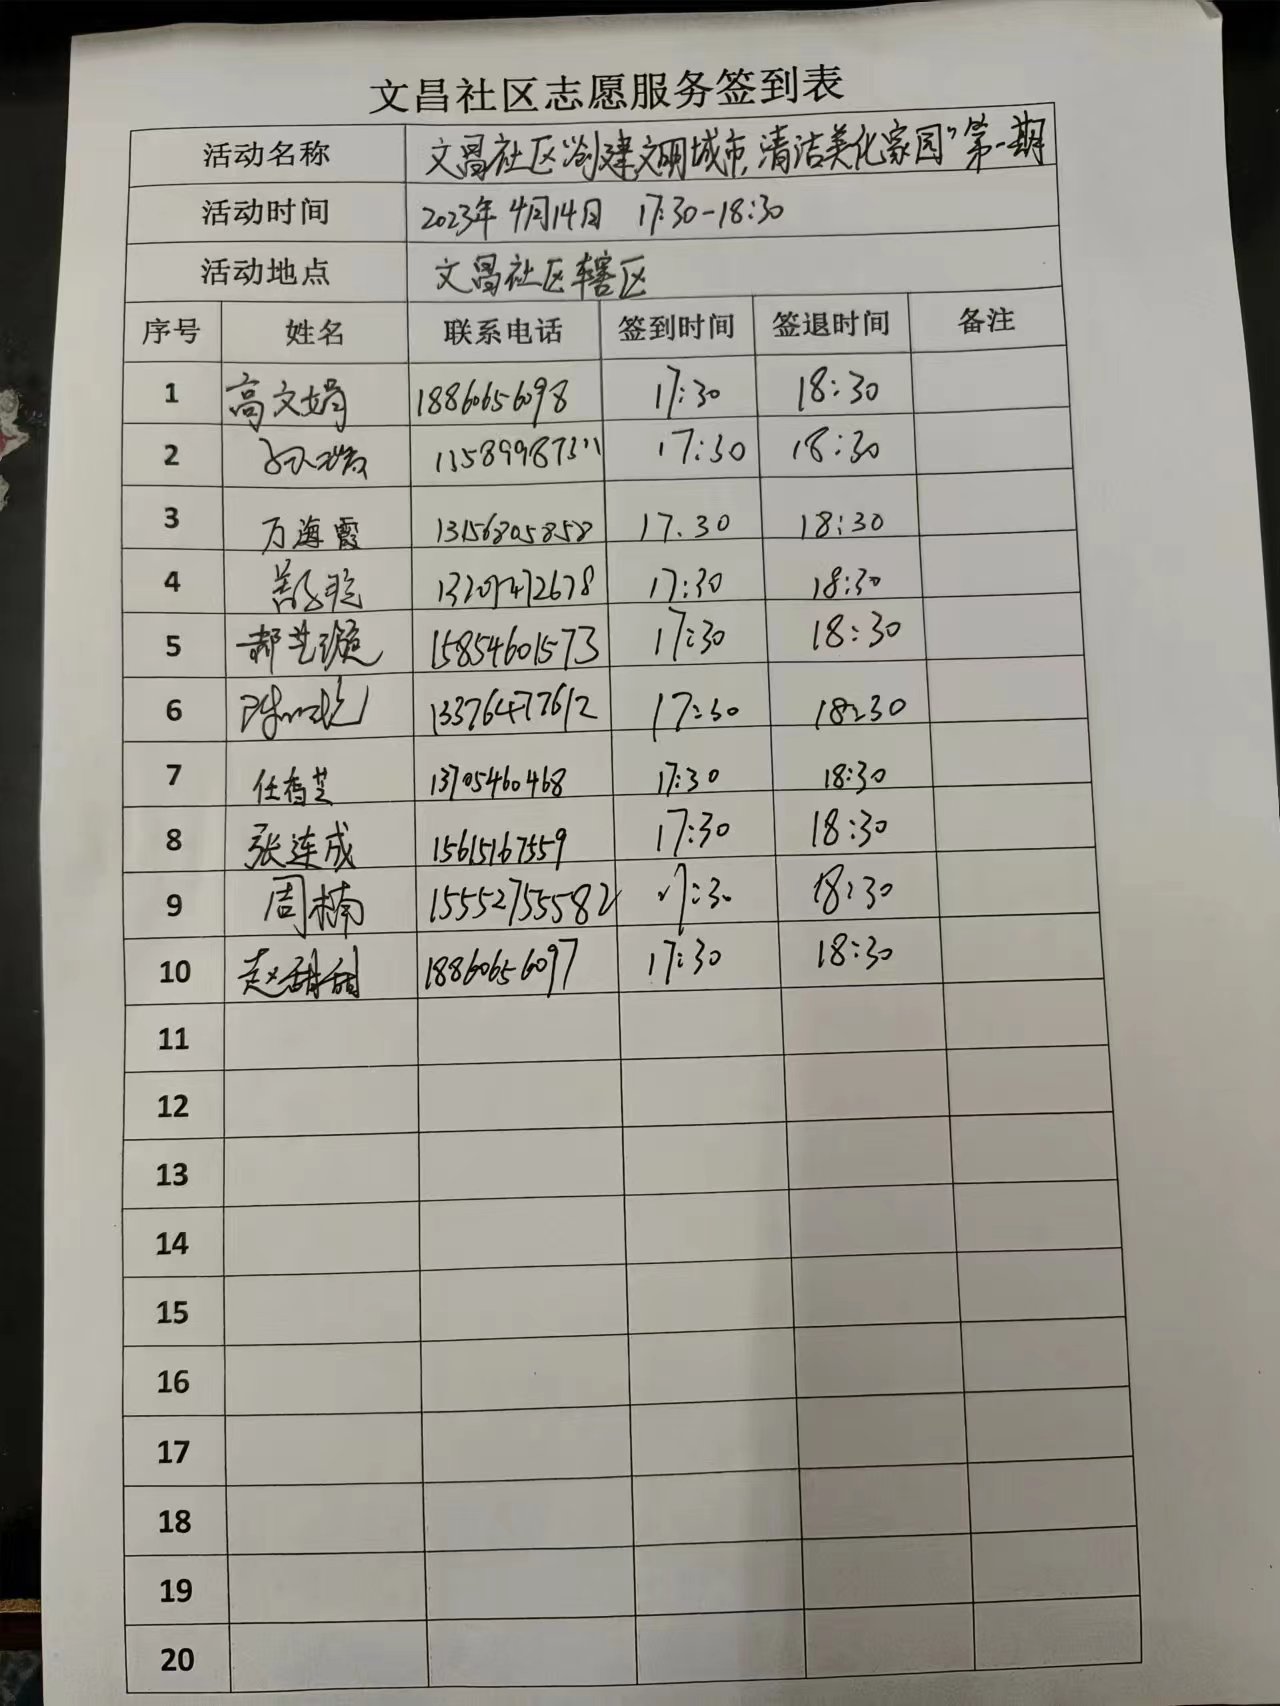 文昌社区志愿服务签到表
活动名称 文昌社区"创建文明城市,清洁美化家园"第一期
活动时间 2023年4月14日 17:30-18:30
活动地点 文昌社区辖区
序号 姓名 联系电话 签到时间 签退时间 备注
1 高文娟 18860656098 17:30 18:30
2 17:30 18:30
3 万海霞 13156805858 17.30 18:30
4 17:30 18:30
5 郝艺璇 15854601573 17:30 18:30
6 13376477612 17:30 18:30
7 13705460468 17:30 18:30
8 张连成 15615167559 17:30 18:30
9 周楠 15552755582 17:30 18:30
10 赵甜甜 18860656097 17:30 18:30
11
12
13
14
15
16
17
18
19
20